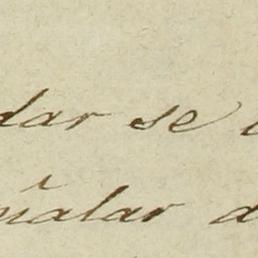 dar se
ñalar d